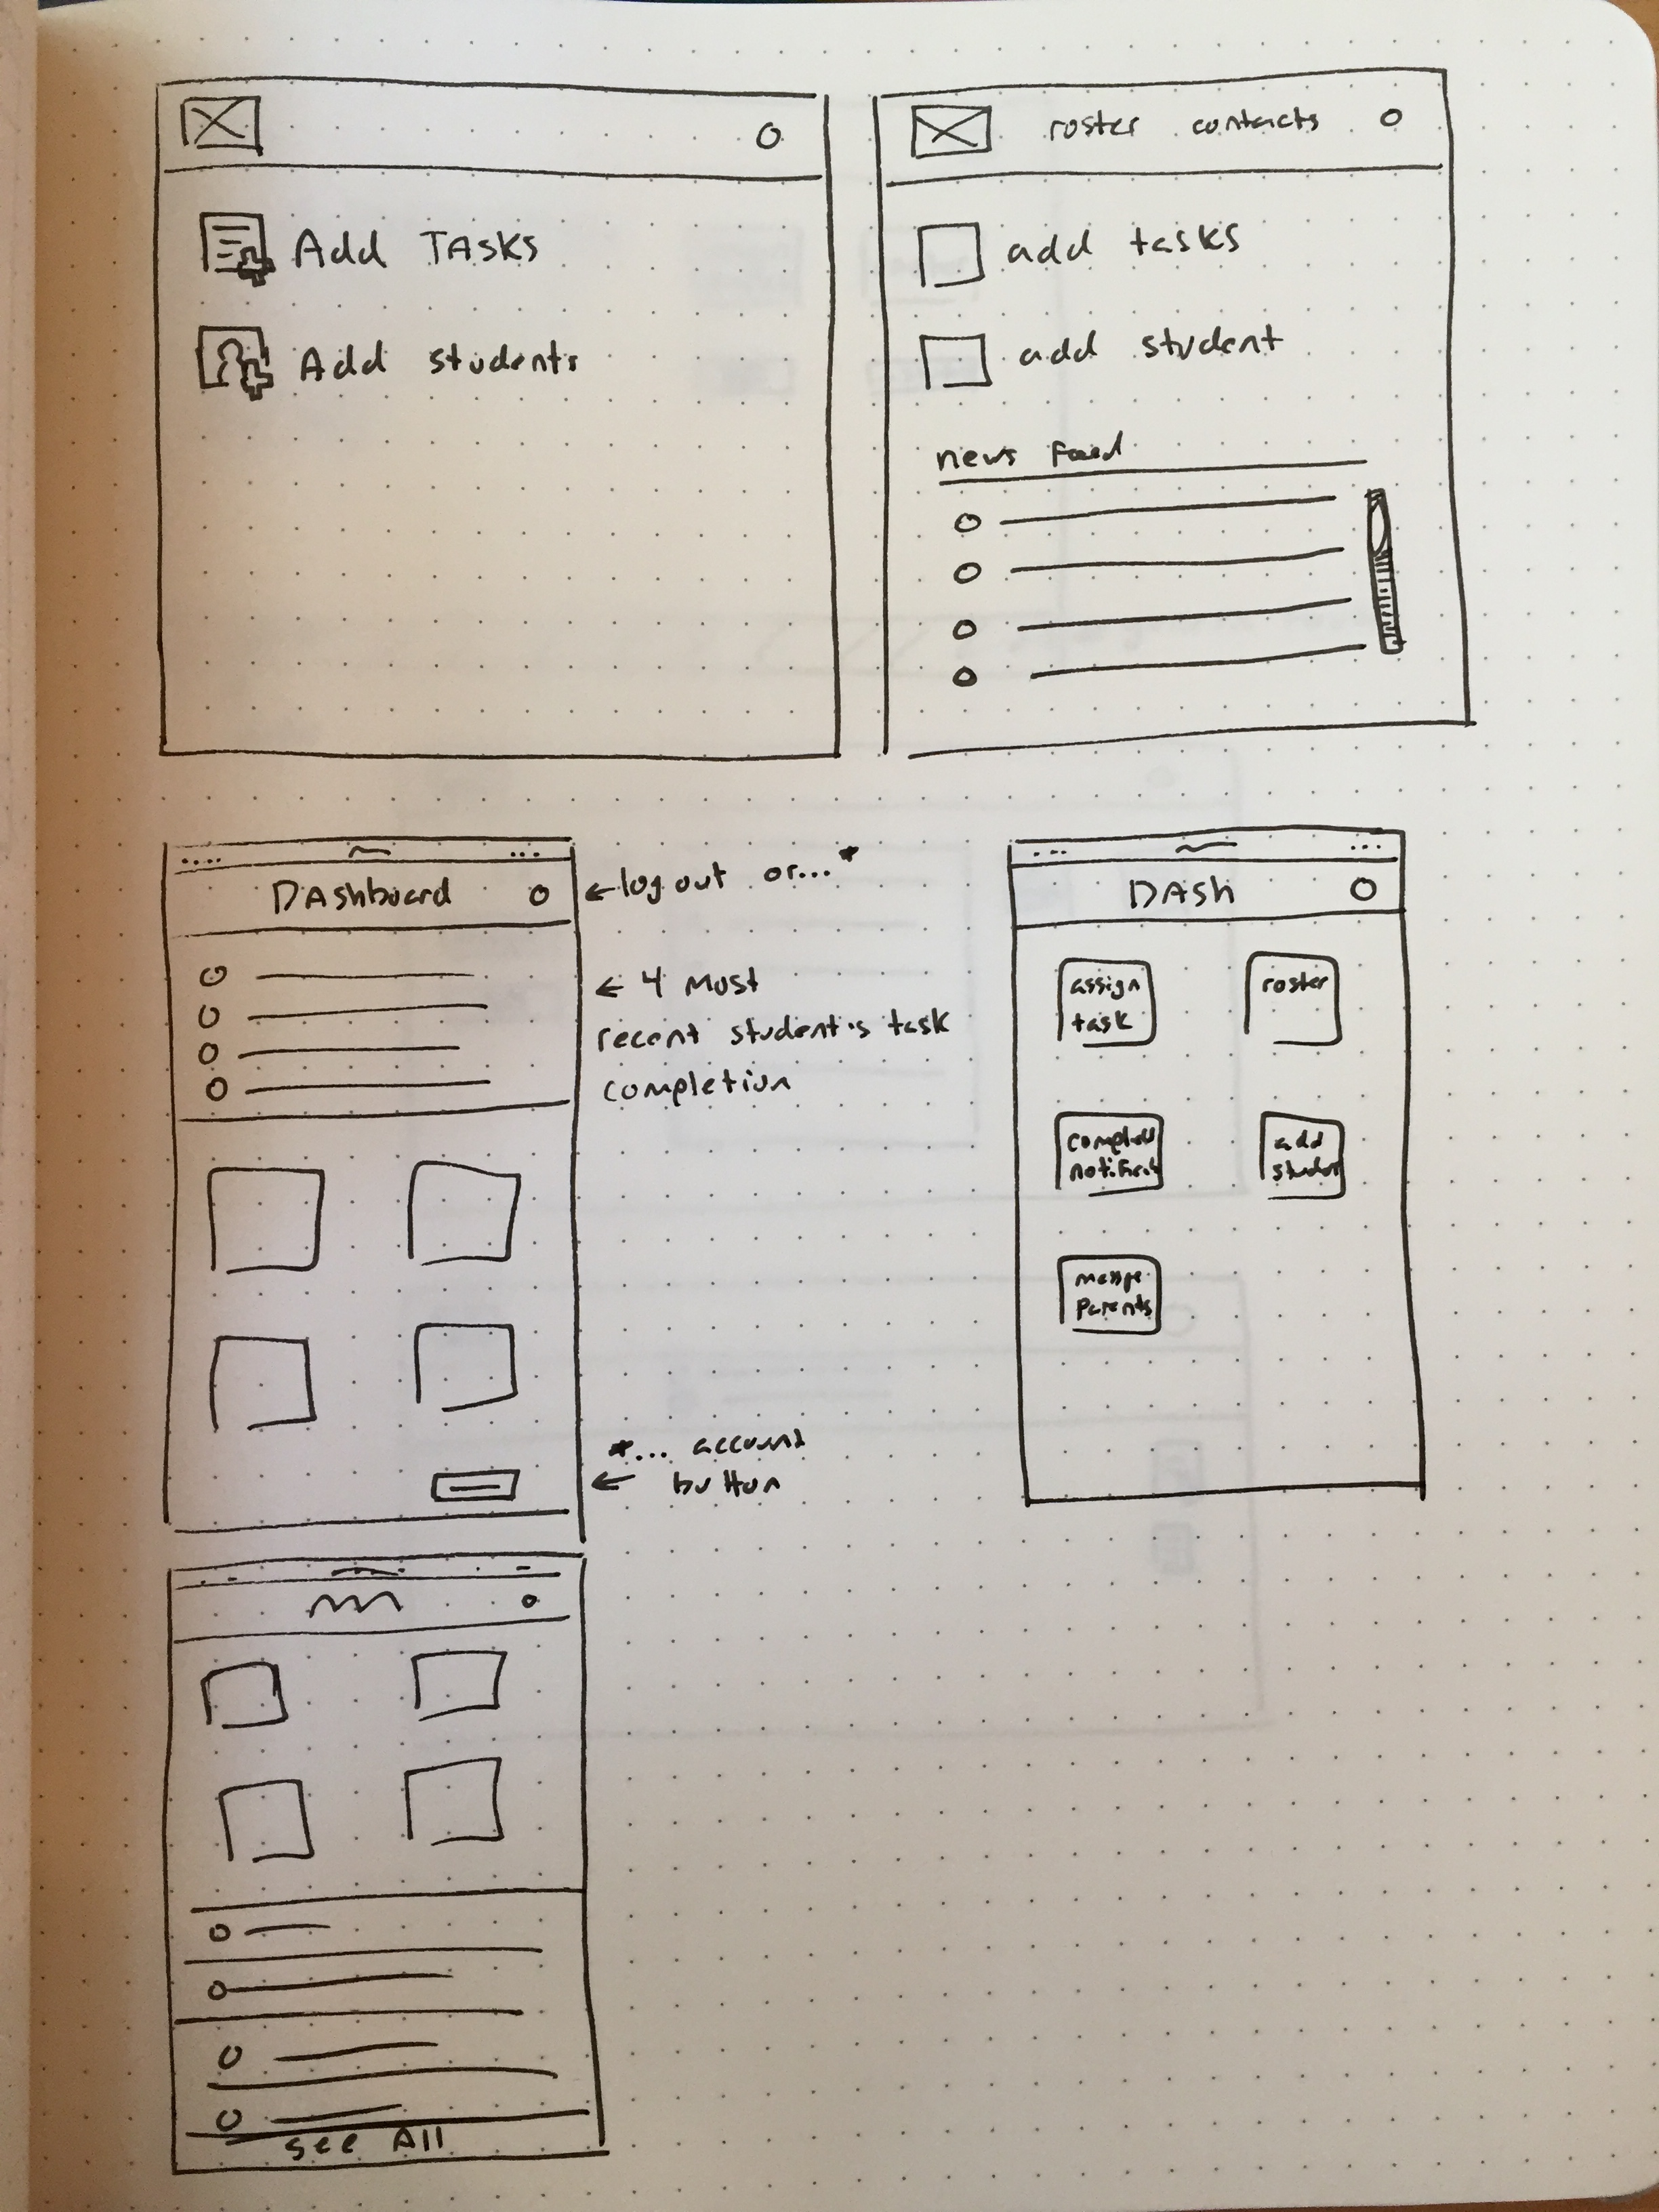 Add TASKS
Add students
roster contacts
add tasks
add student
news feed
DAshboard
←log out or...*
← 4 most
recent student's task
completion
*... account
← button
DASh
assign
task
roster
add
parents
see All